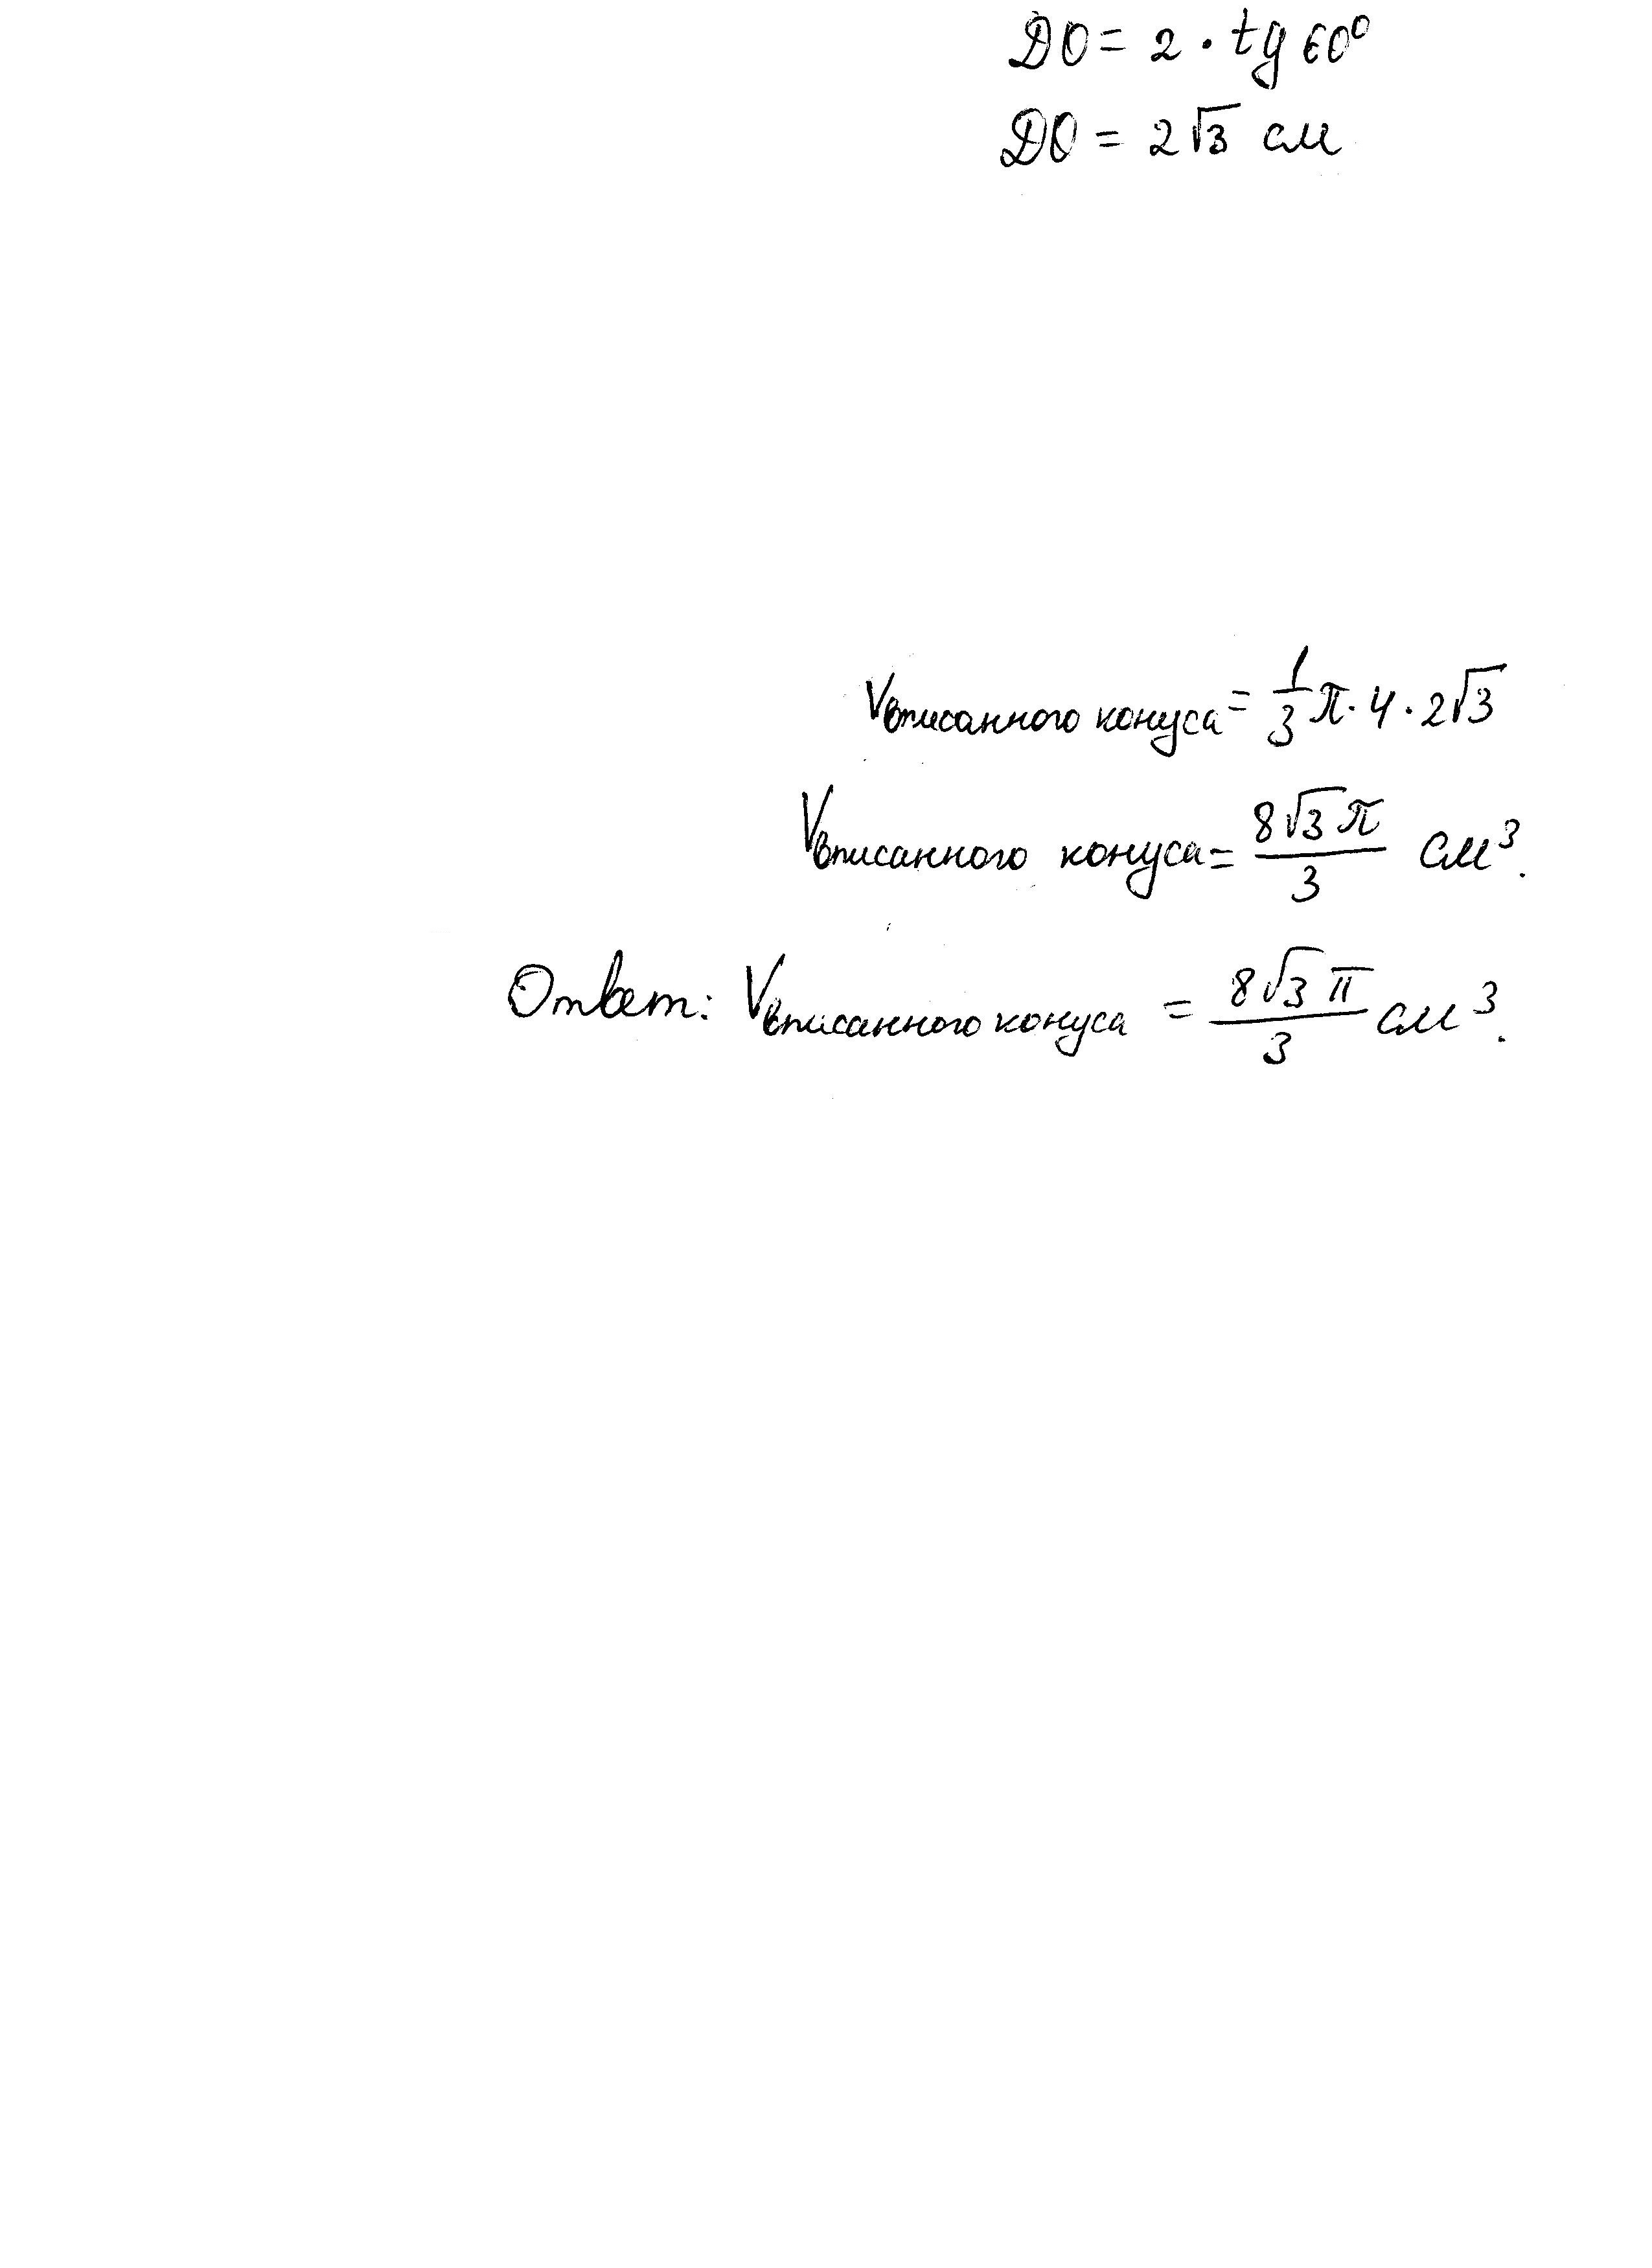 DO = 2 · tg 60°
DO = 2√3 см
Vвписанного конуса = 1/3 π · 4 · 2√3
Vвписанного конуса = 8√3π/3 см³.
Ответ: Vвписанного конуса = 8√3π/3 см³.